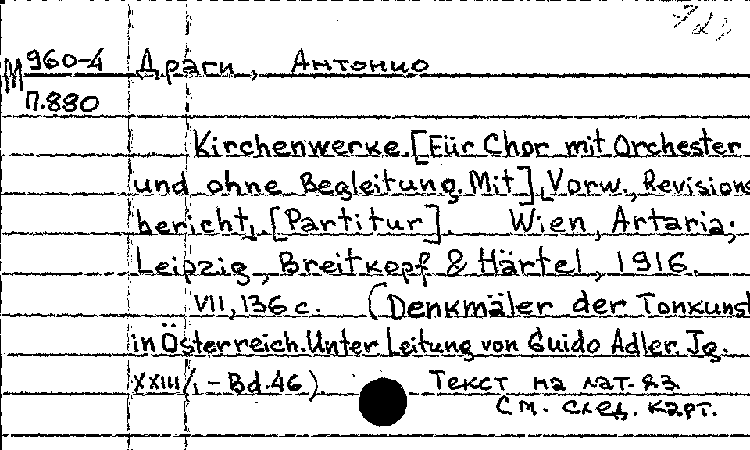 М 960-4 Драги, Антонио
П.880
Kirchenwerke. [Für Chor mit Orchester
und ohne Begleitung. Mit] Vorw., Revisions
bericht. [Partitur]. Wien, Artaria;
Leipzig, Breitkopf & Härtel, 1916.
VII, 136 с. (Denkmäler der Tonkunst
in Österreich. Unter Leitung von Guido Adler. Jg.
XXIII/1 - Bd. 46) Текст на лат. яз.
См. след. карт.